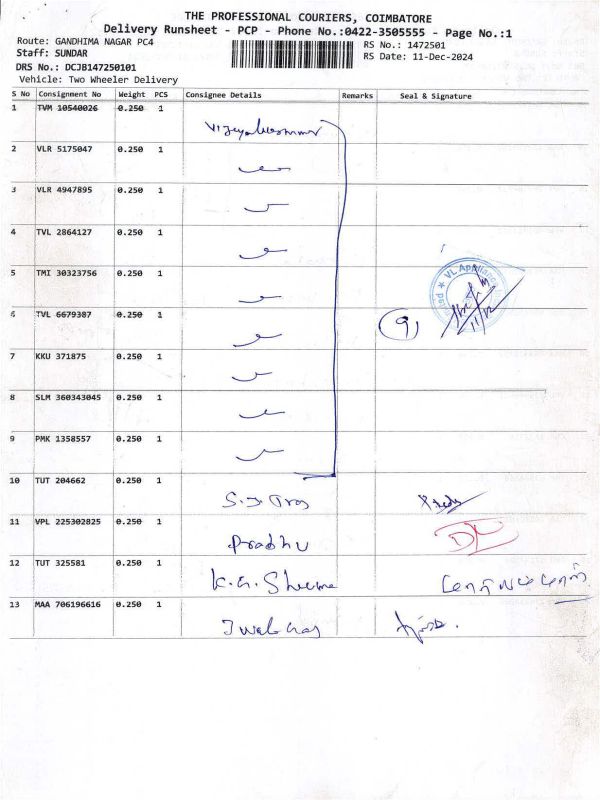 THE PROFESSIONAL COURIERS, COIMBATORE
Delivery Runsheet - PCP - Phone No.:0422-3505555 - Page No.:1
Route: GANDHIMA NAGAR PC4
RS No.: 1472501
Staff: SUNDAR
RS Date: 11-Dec-2024
DRS No.: DCJB147250101
Vehicle: Two Wheeler Delivery
S No Consignment No Weight PCS Consignee Details Remarks Seal & Signature
1 TVM 10540026 0.250 1
2 VLR 5175047 0.250 1
3 VLR 4947895 0.250 1
4 TVL 2864127 0.250 1
5 TMI 30323756 0.250 1
VL Appliance
6 TVL 6679387 0.250 1
9
11/12
7 KKU 371875 0.250 1
8 SLM 360343045 0.250 1
9 PMK 1358557 0.250 1
10 TUT 204662 0.250 1
11 VPL 225302825 0.250 1
Pradhu
12 TUT 325581 0.250 1
13 MAA 706196616 0.250 1